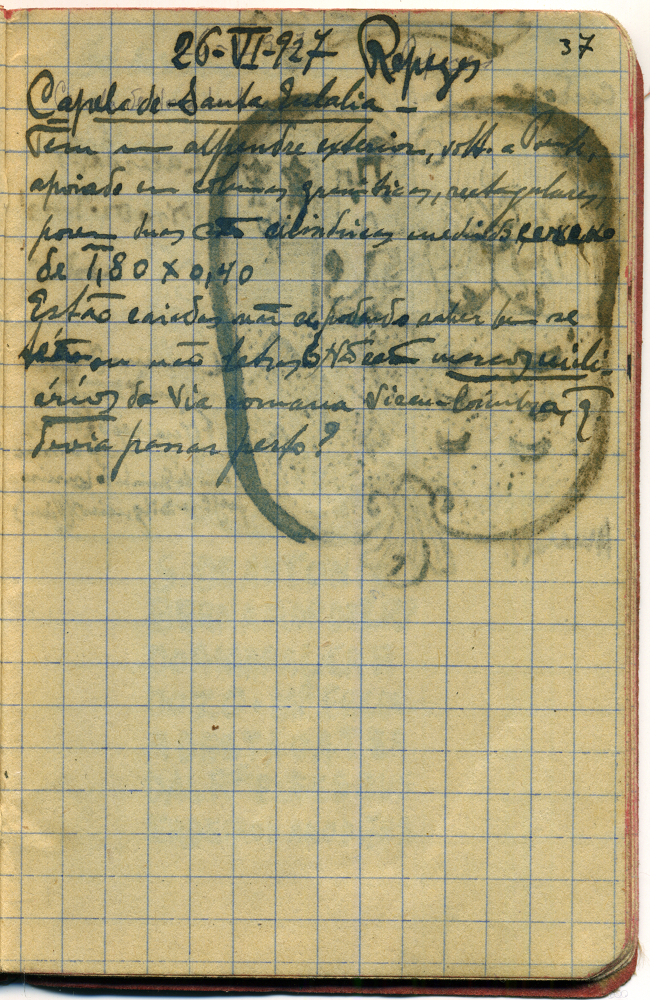 26-VI-927 Repezes 37
Capela de Santa Eulalia -
Tem um alpendre exterior, volt. a Poente,
apoiado em colunas graniticas, rectangulares,
porem duas são cilindricas medindo cerca
de 1,80 x 0,40
Estão caiadas não se podendo saber bem se
teem ou não letras. Não serão marcos mili-
ários da Via romana Viseu-Coimbra, q.
devia passar perto?